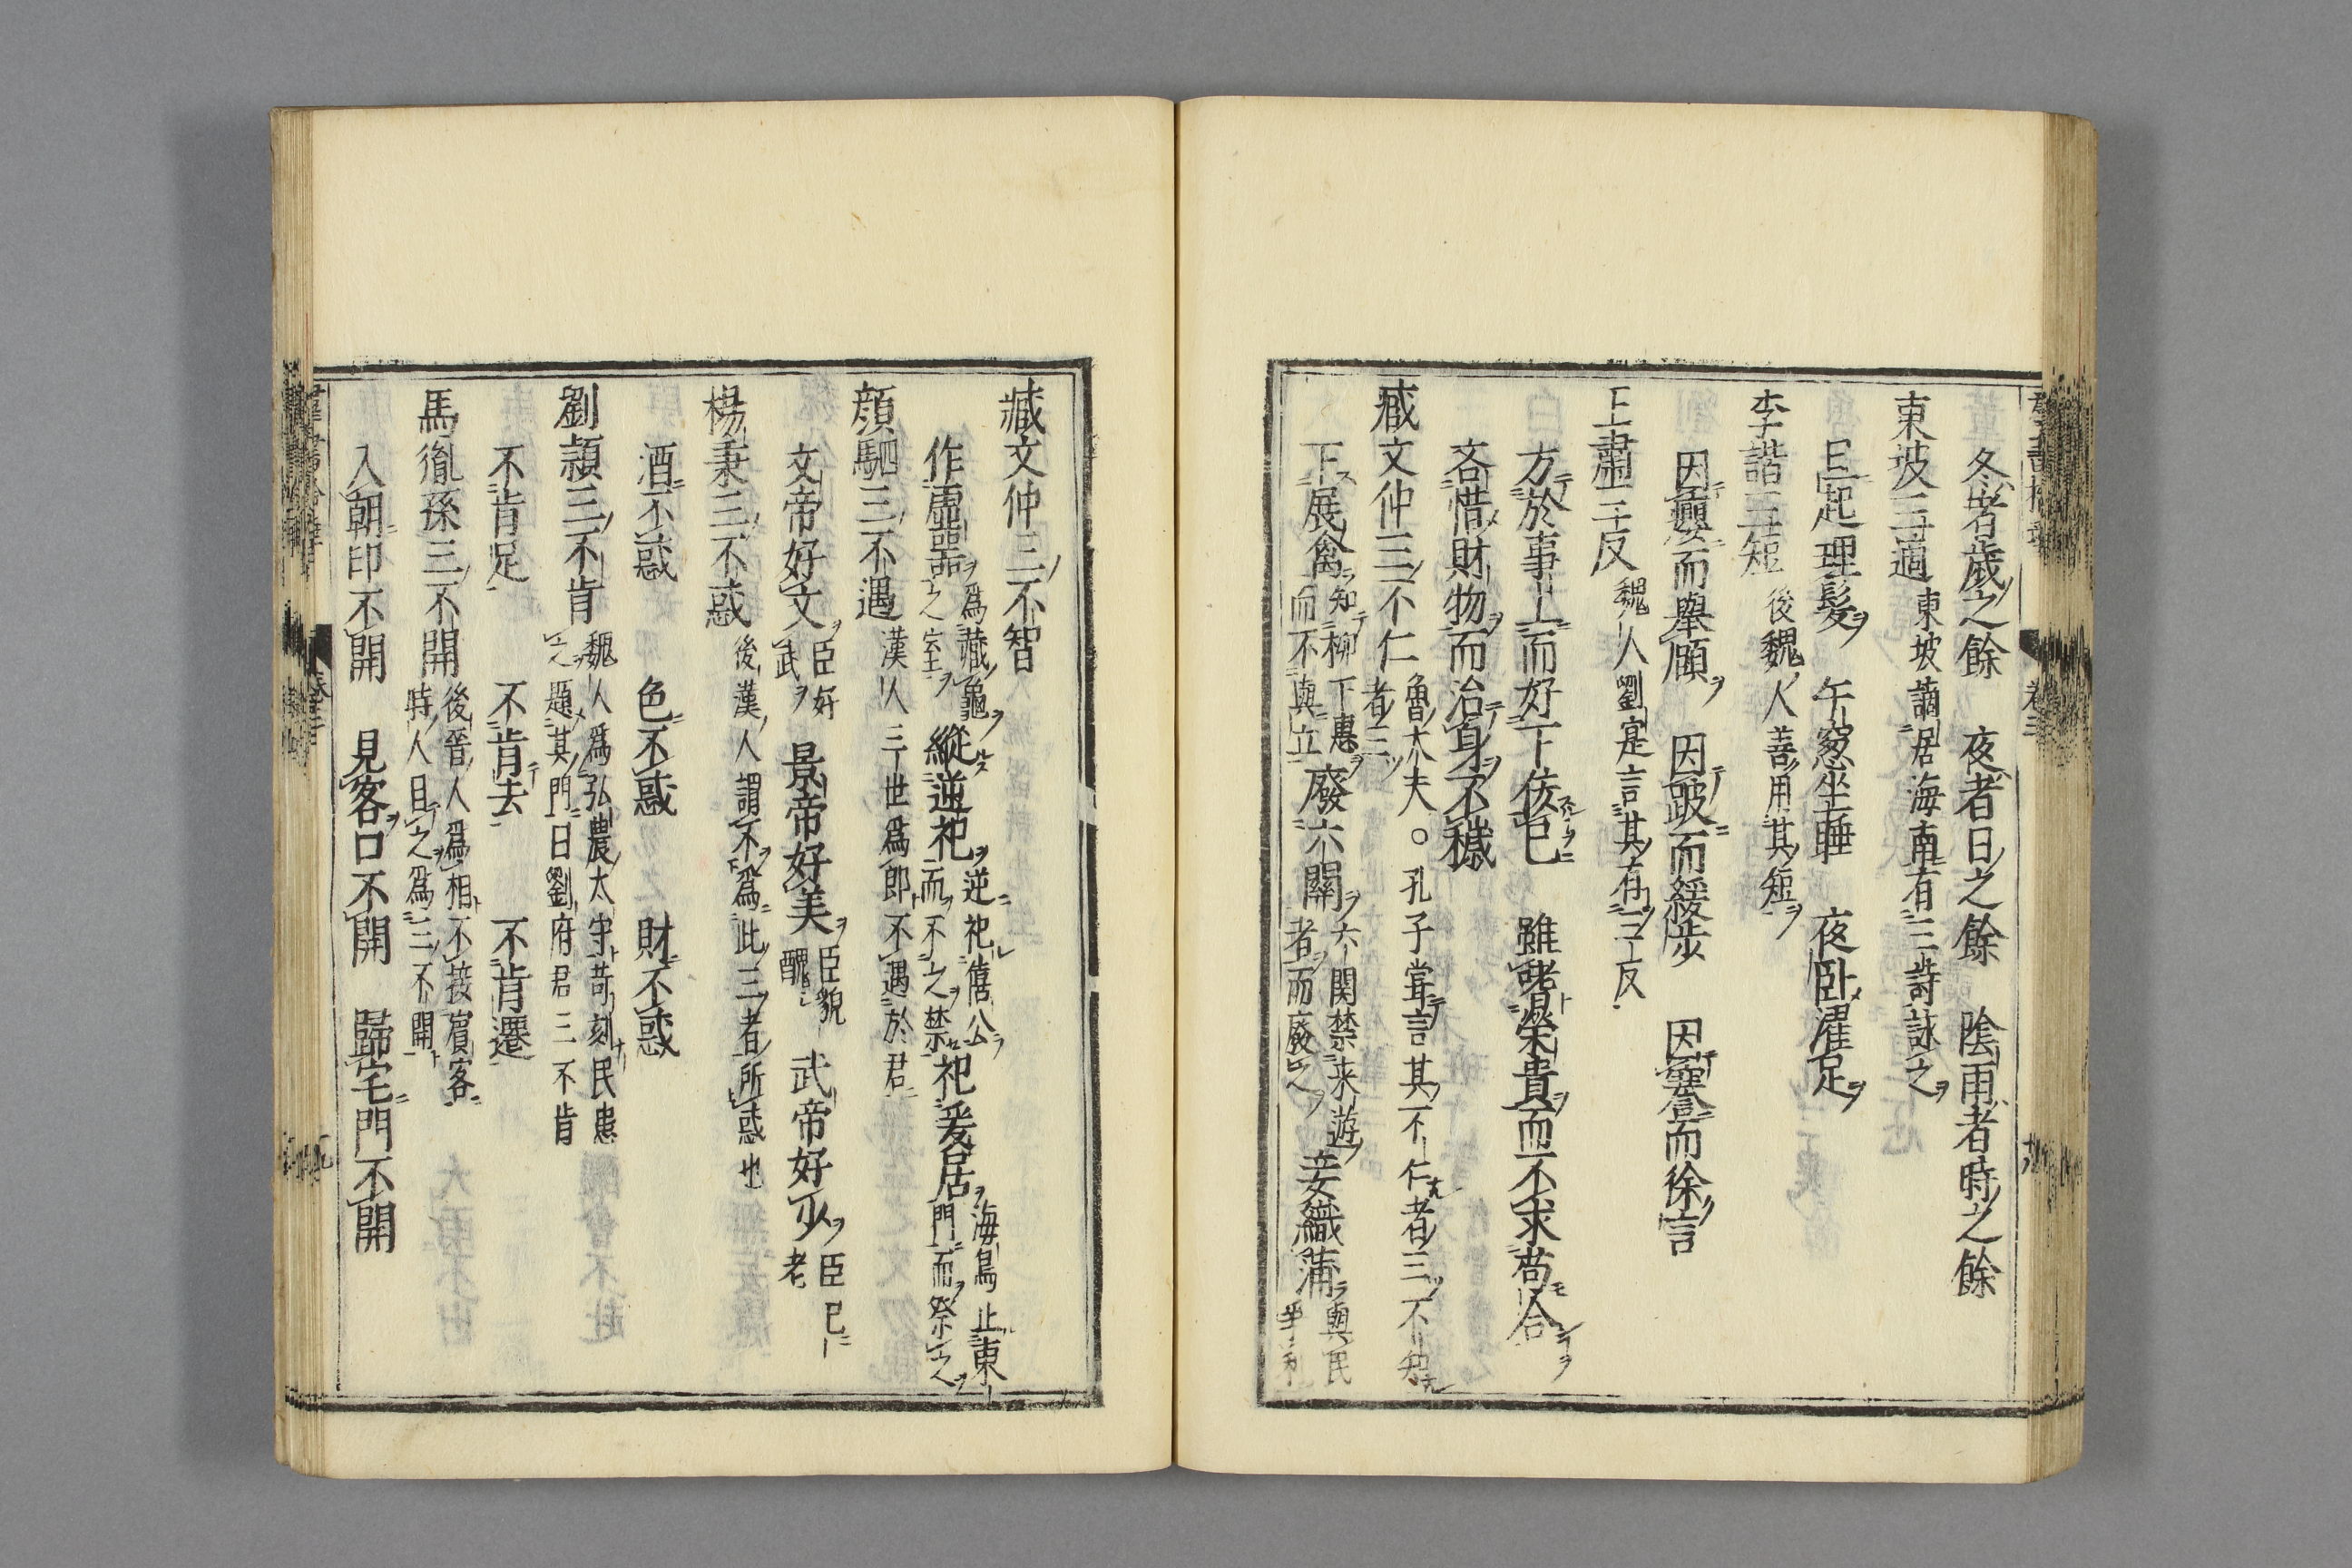 冬者歲之餘　夜者日之餘　陰雨者時之餘
東坡三適 東坡謫居海南有三詩詠之
旦起理髮　午窓坐睡　夜臥濯足
李諧三短 後魏人善用其短
因癭而舉頤　因跛而緩步　因蹇而徐言
王肅三反 魏人劉寔言其有三反
方於事上而好下佞己　雖嗜榮貴而不求苟合
吝惜財物而治身不穢
臧文仲三不仁 魯大夫。孔子嘗言其不仁者三不知者三
下展禽 知柳下惠而不與立 廢六關 六関禁来遊者而廢之 妾織蒲 與民爭利
臧文仲三不智
作虛器 為藏龜之室 縱逆祀 逆祀僖公而不之禁 祀爰居 海鳥止東門而祭之
顔駟三不遇 漢人三世為郎不遇於君
文帝好文 臣好武　景帝好美 臣貌醜　武帝好少 臣已老
楊秉三不惑 後漢人謂不為此三者所惑也
酒不惑　色不惑　財不惑
劉頴三不肯 魏人為弘農太守苛刻民患之題其門曰劉府君三不肯
不肯足　不肯去　不肯遷
馬胤孫三不開 後晉人為相不接賓客時人目之為三不開
入朝印不開　見客口不開　歸宅門不開
卷三